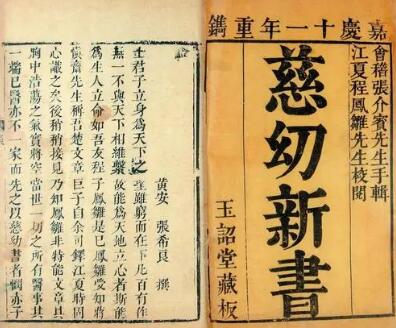 嘉慶十一年重鐫
會稽張介賓先生手輯
江夏程鳳雛先生校閱
慈幼新書
玉詔堂藏板
黃安 張希良 撰
士君子立身為天下之
望雖窮而在下凡百有作
無一不與天下相維繫故能為天地立心者斯能
為生人立命如吾友程子鳳雛是已鳳雛受知蔣
慎齋先生稱吾楚文章巨子自余司鐸江夏時固
心識之矣後稍稍接見乃知鳳雛非特能文章其
胸中浩蕩之氣實將空當世一切之所有醫事其
一端已醫亦不一家而先之以慈幼書者